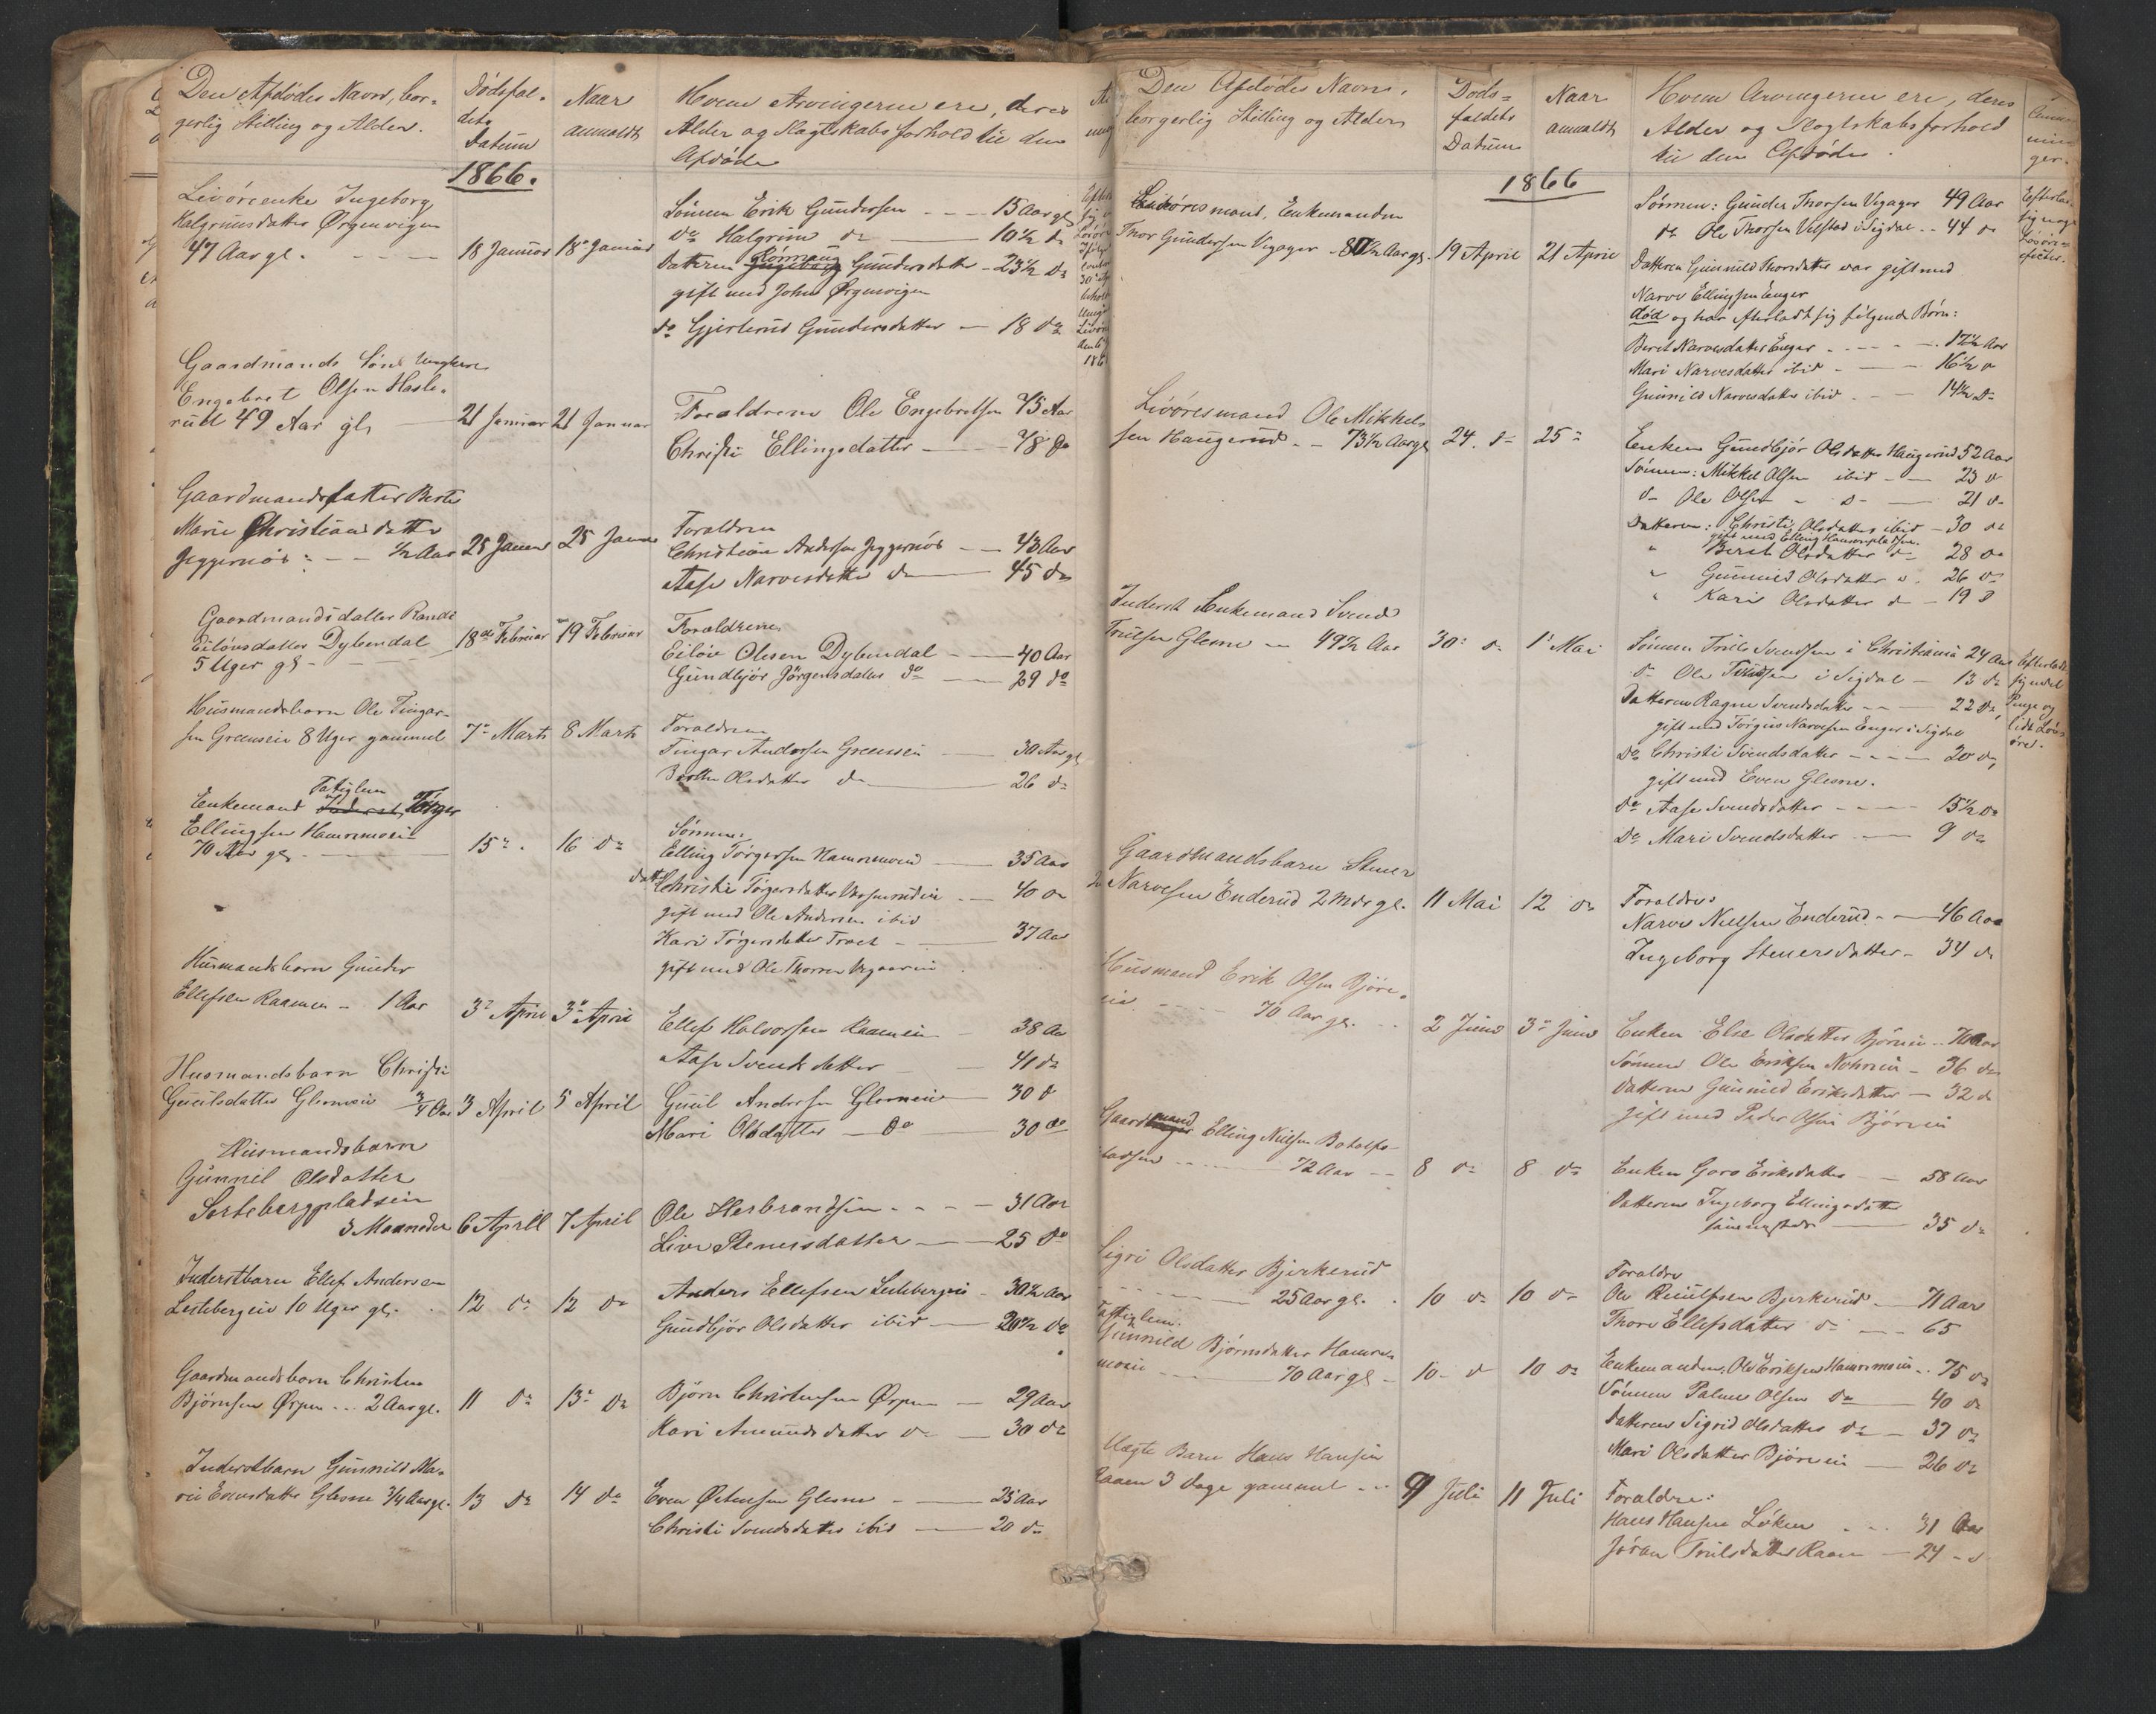 Den Afdødes Navn, bor-
gerlig Stilling og Alder.
Dødsfal-
dets
Datum
Naar
anmeldt
Hvem Arvingerne ere, deres
Alder og Slægtskabsforhold til den
Afdøde
1866.
Livøreenke Ingeborg
Halgrimsdatter Ørgenvigen
47 Aar gl.
18 Januar
18de Januar
Sønnen Erik Gundersen 15 Aar gl.
do Halgrim do 10½ do
Datteren Gunders datter 23½ do
gift med John Ørgenvigen
do Gjertrud Gundersdatter 18 do
Gaardmands Søn Ungkarl
Engebret Olsen Hasle-
rud 49 Aar gl.
21 Januar
21 Januar
Forældrene Ole Engebretsen 75 Aar
Christi Ellingsdatter 78 do
Gaardmandsdatter Berte
Marie Christiansdatter
Jeggernøs ½ Aar
25 Januar
25 Januar
Forældrene
Christian Andersen Jeggernøs 43 Aar
Aase Narvesdatter do 45 do
Gaardmandsdatter Randi
Eilovsdatter Dybendal
5 Uger gl.
18de Februar
19 Februar
Forældrene
Eilov Olesen Dybendal 40 Aar
Gundbjør Jørgensdatter do 29 do
Husmandsbarn Ole Fingar-
sen Greenseie 8 Uger gammel
7de Marts
8 Marts
Forældrene
Fingar Andersen Greensei 30 Aar gl.
Berthe Olsdatter do 26 do
Fatiglem
Enkemand Inderst Törger
Ellingsen Hamremoeie
70 Aar gl.
15de
16 do
Sønnen:
Elling Törgersen Hamremoeie 35 Aar
Datt. Christie Törgersdatter 40 do
gift med Ole Andersen ibid
Kari Törgersdatter 37 Aar
gift med Ole Thorsen
Husmandsbarn Gunder
Ellefsen Raamen 1 Aar
3de April
3de April
Ellef Halvorsen Raaenein 38 Aar
Aase Svendsdatter 41 do
Husmandsbarn Christi
Guulsdatter Glesneeie ¾ Aar
3 April
5 April
Guul Andersen Glesneeie 30 do
Mari Olsdatter do 30 do
Husmandsbarn
Gunnil Olsdatter
Sortebergpladsein
3 Maaneder
6 April
7 April
Ole Herbrandsen 31 Aar
Live Stenersdatter 25 do
Inderstbarn Ellef Andersen
Lestebergeie 10 Uger gl.
12 do
12 do
Anders Ellefsen Lestebergeie 30½ Aar
Gundbjør Olsdatter ibid 29½ do
Gaardmandsbarn Christen
Bjørnsen Ørpen 2 Aar gl.
11 do
13de do
Bjørn Christensen Ørpen 29 Aar
Kari Amundsdatter do 30 do
Inderstbarn Gunnild Ma-
rie Evensdatter Glesne ¾ Aar gl.
13 do
14 do
Even Østensen Glesne 25 Aar
Christi Svendsdatter ibid 20 do
Den Afdødes Navn,
borgerlig Stilling og Alder
Døds-
faldets
Datum
Naar
anmeldt
Hvem Arvingerne ere, deres
Alder og Slægtskabsforhold
til den Afdøde.
1866
Livøresmand, Enkemanden
Thor Gundersen Vegager 87½ Aar gl.
19 April
21 April
Sønnen: Gunder Thorsen Vegager 49 Aar
do Ole Thorsen Velstad i Sigdal 44 do
Datteren Gunnild Thorsdatter var gift med
Narve Ellingsen Enger
død og har efterladt sig følgende Børn:
Berit Narvesdatter Enger 17½ Aar
Mari Narvesdatter ibid 16½ do
Gunnild Narvesdatter ibid 14½ do
Livøresmand Ole Mikkel-
sen Haugerud 73½ Aar gl.
24. do
25 do
Enken Gundbjør Olsdatter Haugerud 52 Aar
Sønnen: Mikkel Olsen ibid 23 do
do Ole Olsen do 21 do
Datteren: Christi Olsdatter ibid 30 do
gift med Elling
" Berit Olsdatter do 28 do
" Gunnild Olsdatter do 26 do
" Kari Olsdatter do 19 do
Inderst Enkemand Svend
Trulsen Glesne 49½ Aar
30 do
1 Mai
Sønnen Truls Svendsen i Christiania 24 Aar
do Ole i Sigdal 13 do
Datteren Ragne Svendsdatter 22 do,
gift med Törgus Narvesen Enger i Sigdal
Do Christi Svendsdatter 20 do,
gift med Even Glesne.
do Aase Svendsdatter 15½ do
Do Mari Svendsdatter 9 do
Gaardmandsbarn Stener
Narvesen Enderud 2 Mdr gl.
11 Mai
12 do
Forældre:
Narve Nielsen Enderud 46 Aar
Ingeborg Stenersdatter 34 do
Husmand Erik Olsen Bjøre-
eie 70 Aar gl.
2 Juni
3de Juni
Enken Else Olsdatter Bjøreeie 70 Aar
Sønnen Ole Eriksen 36 do
Datteren Gunnild Eriksdatter 32 do
gift med Peder Olsen Bjøreeie
Gaardmand Elling Nielsen Botolfs-
72 Aar
8 do
8 do
Enken Goro Eriksdatter 58 Aar
Datteren Ingeborg Ellingsdatter
sammesteds 35 do
Sigri Olsdatter Bjerkerud
25 Aar gl.
10 do
10 do
Forældre
Ole Bjerkerud 71 Aar
Thore Ellefsdatter do 65
Fattiglem.
Gunnild Bjørnsdatter Hamre-
moeie 70 Aar gl.
10 do
10 do
Enkemanden, Ole Eriksen Hamremoeie 75 do
Sønnen Palme Olsen do 40 do
Datteren Sigrid Olsdatter do 37 do
Mari Olsdatter Bjøreeie 26 do
Uægte Barn Hans Hansen
Raaen 3 Dage gammel
9 Juli
11 Juli
Forældre:
Hans Hansen Løken 31 Aar
Jøran Trulsdatter Raaen 24 do